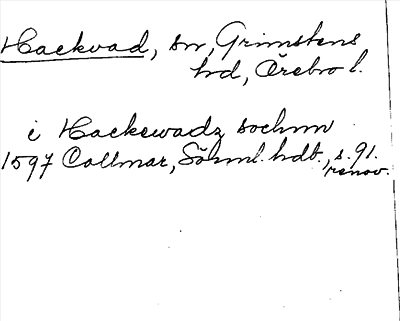 Hackvad, sn, Grimstens
hd, Örebro l.
i Hackewadz sochnn
1597 Collmar, Söhml. hdl., s. 91.
renov.